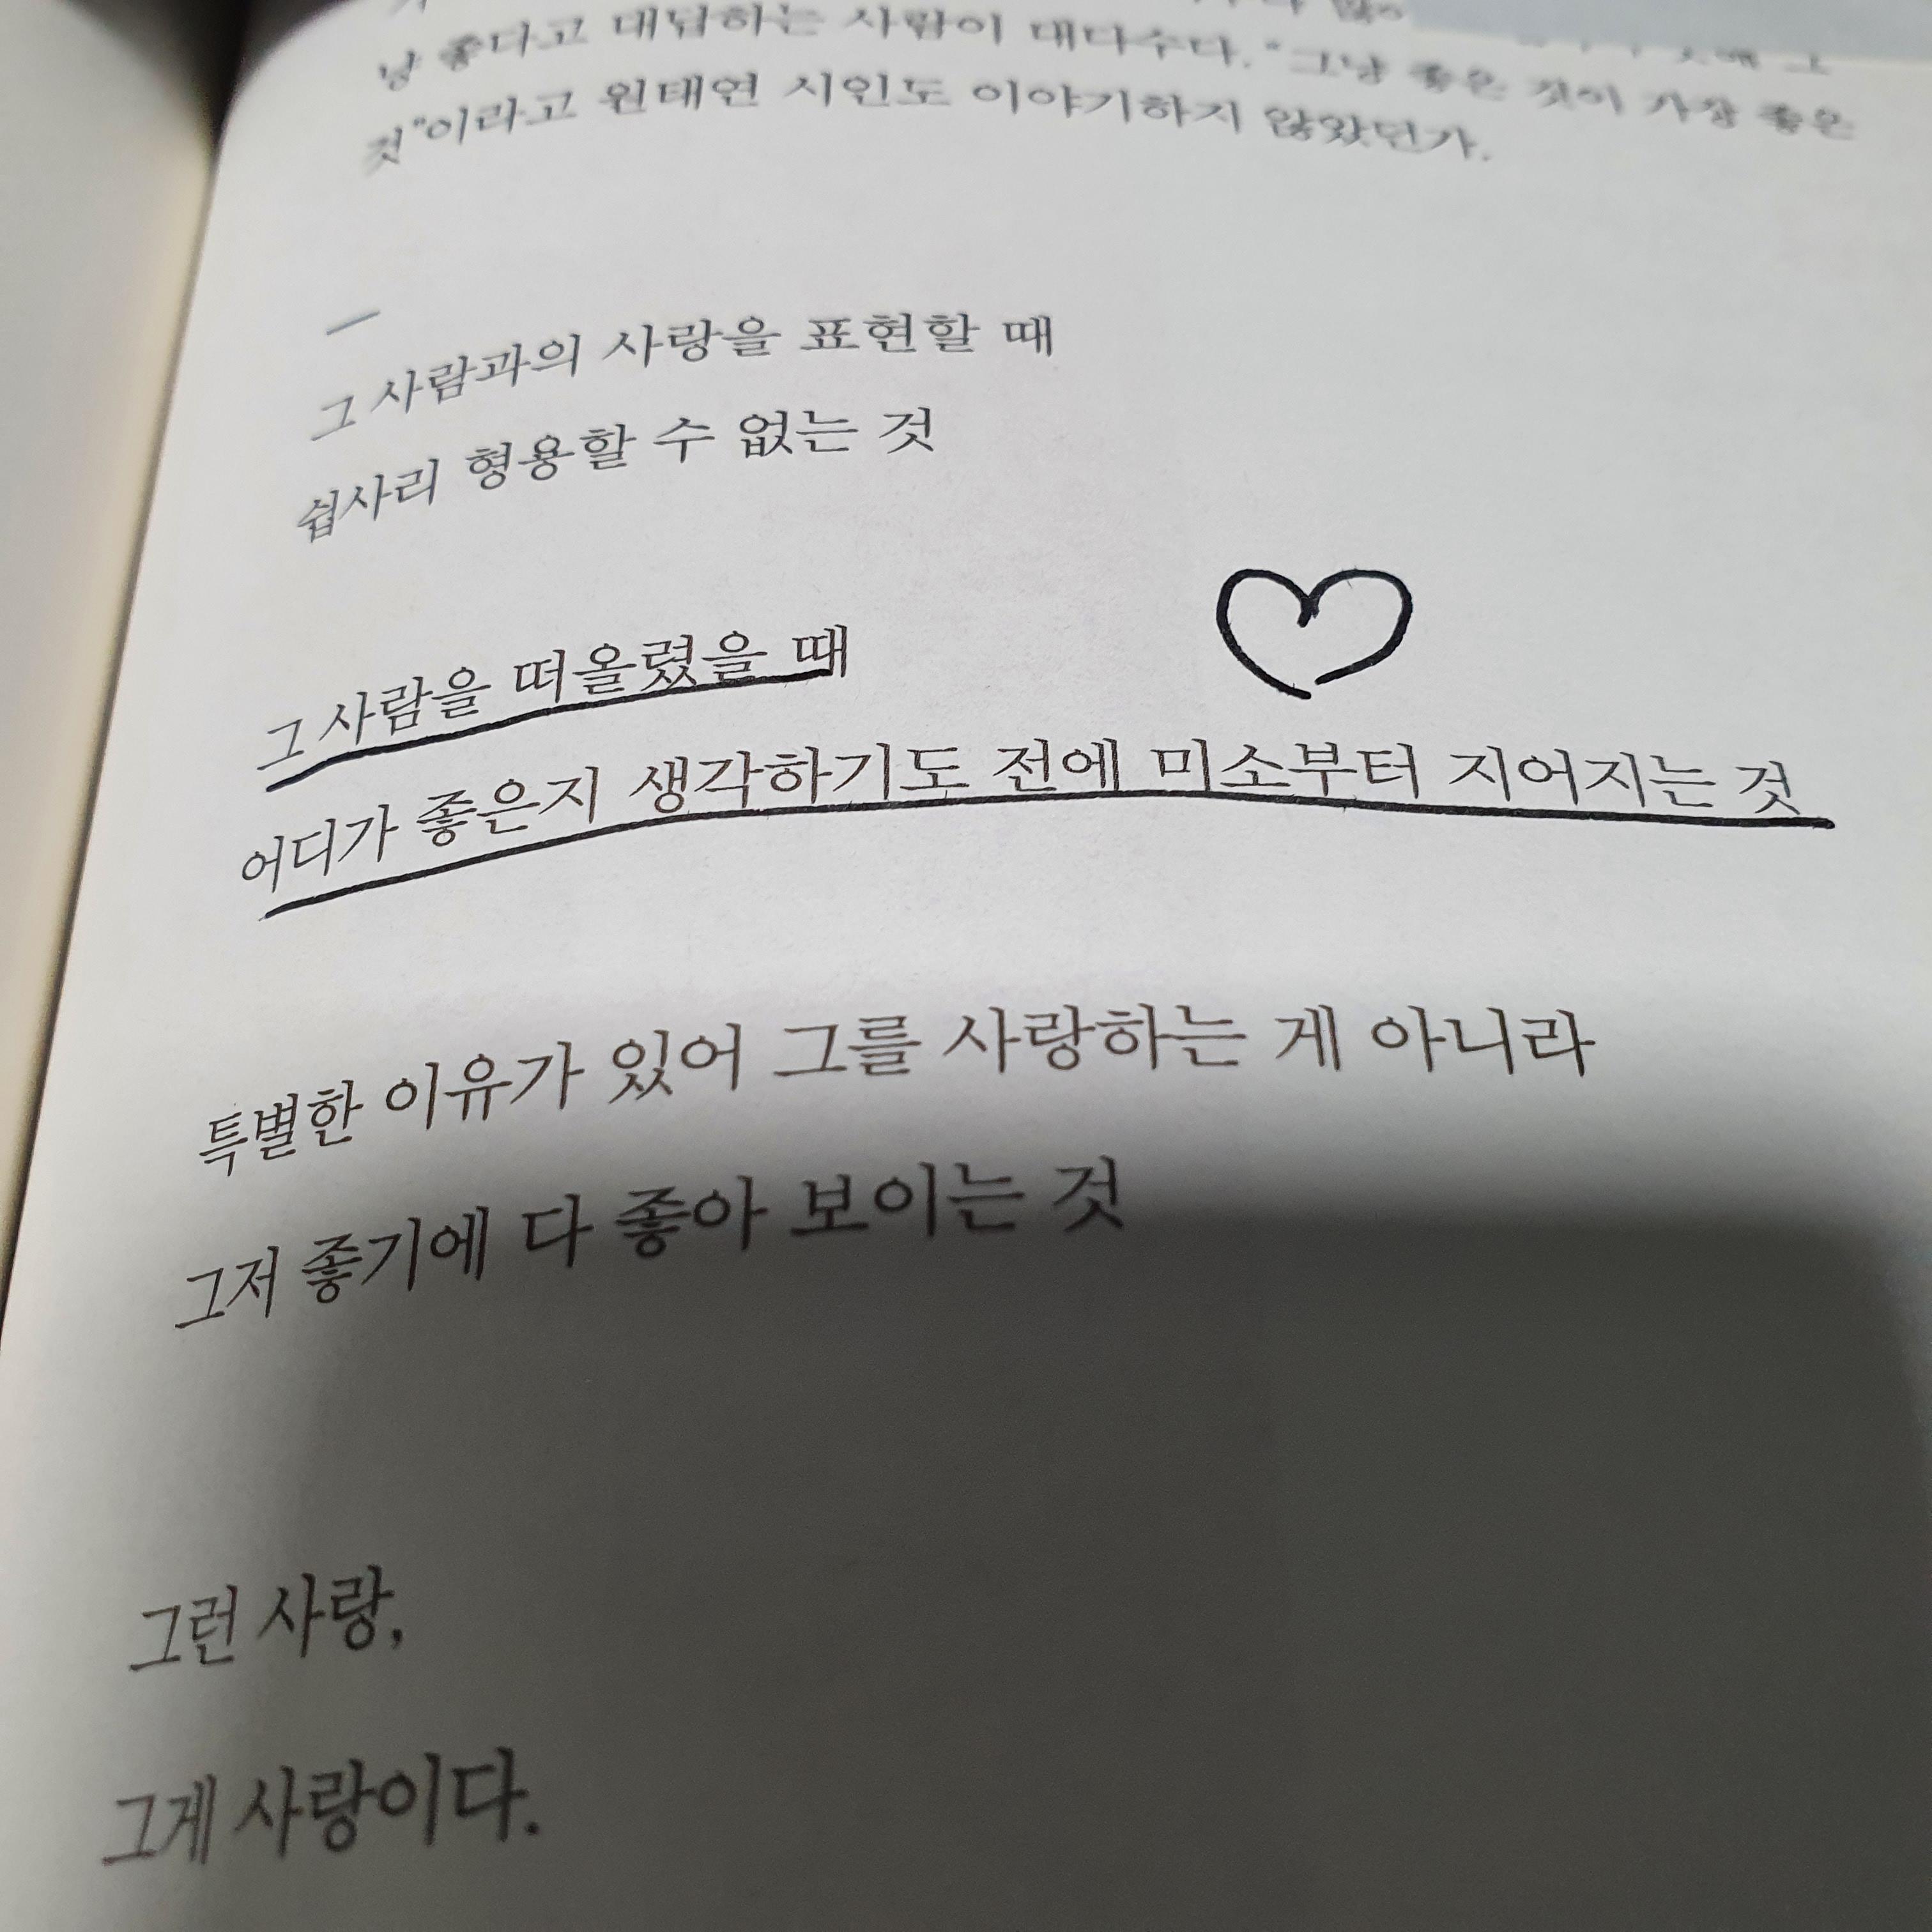 냥 좋다고 대답하는 사람이 대다수다. "그냥 좋은 것이 가장 좋은
것"이라고 원태연 시인도 이야기하지 않았던가.
그 사람과의 사랑을 표현할 때
쉽사리 형용할 수 없는 것
그 사람을 떠올렸을 때
어디가 좋은지 생각하기도 전에 미소부터 지어지는 것
특별한 이유가 있어 그를 사랑하는 게 아니라
그저 좋기에 다 좋아 보이는 것
그런 사랑,
그게 사랑이다.